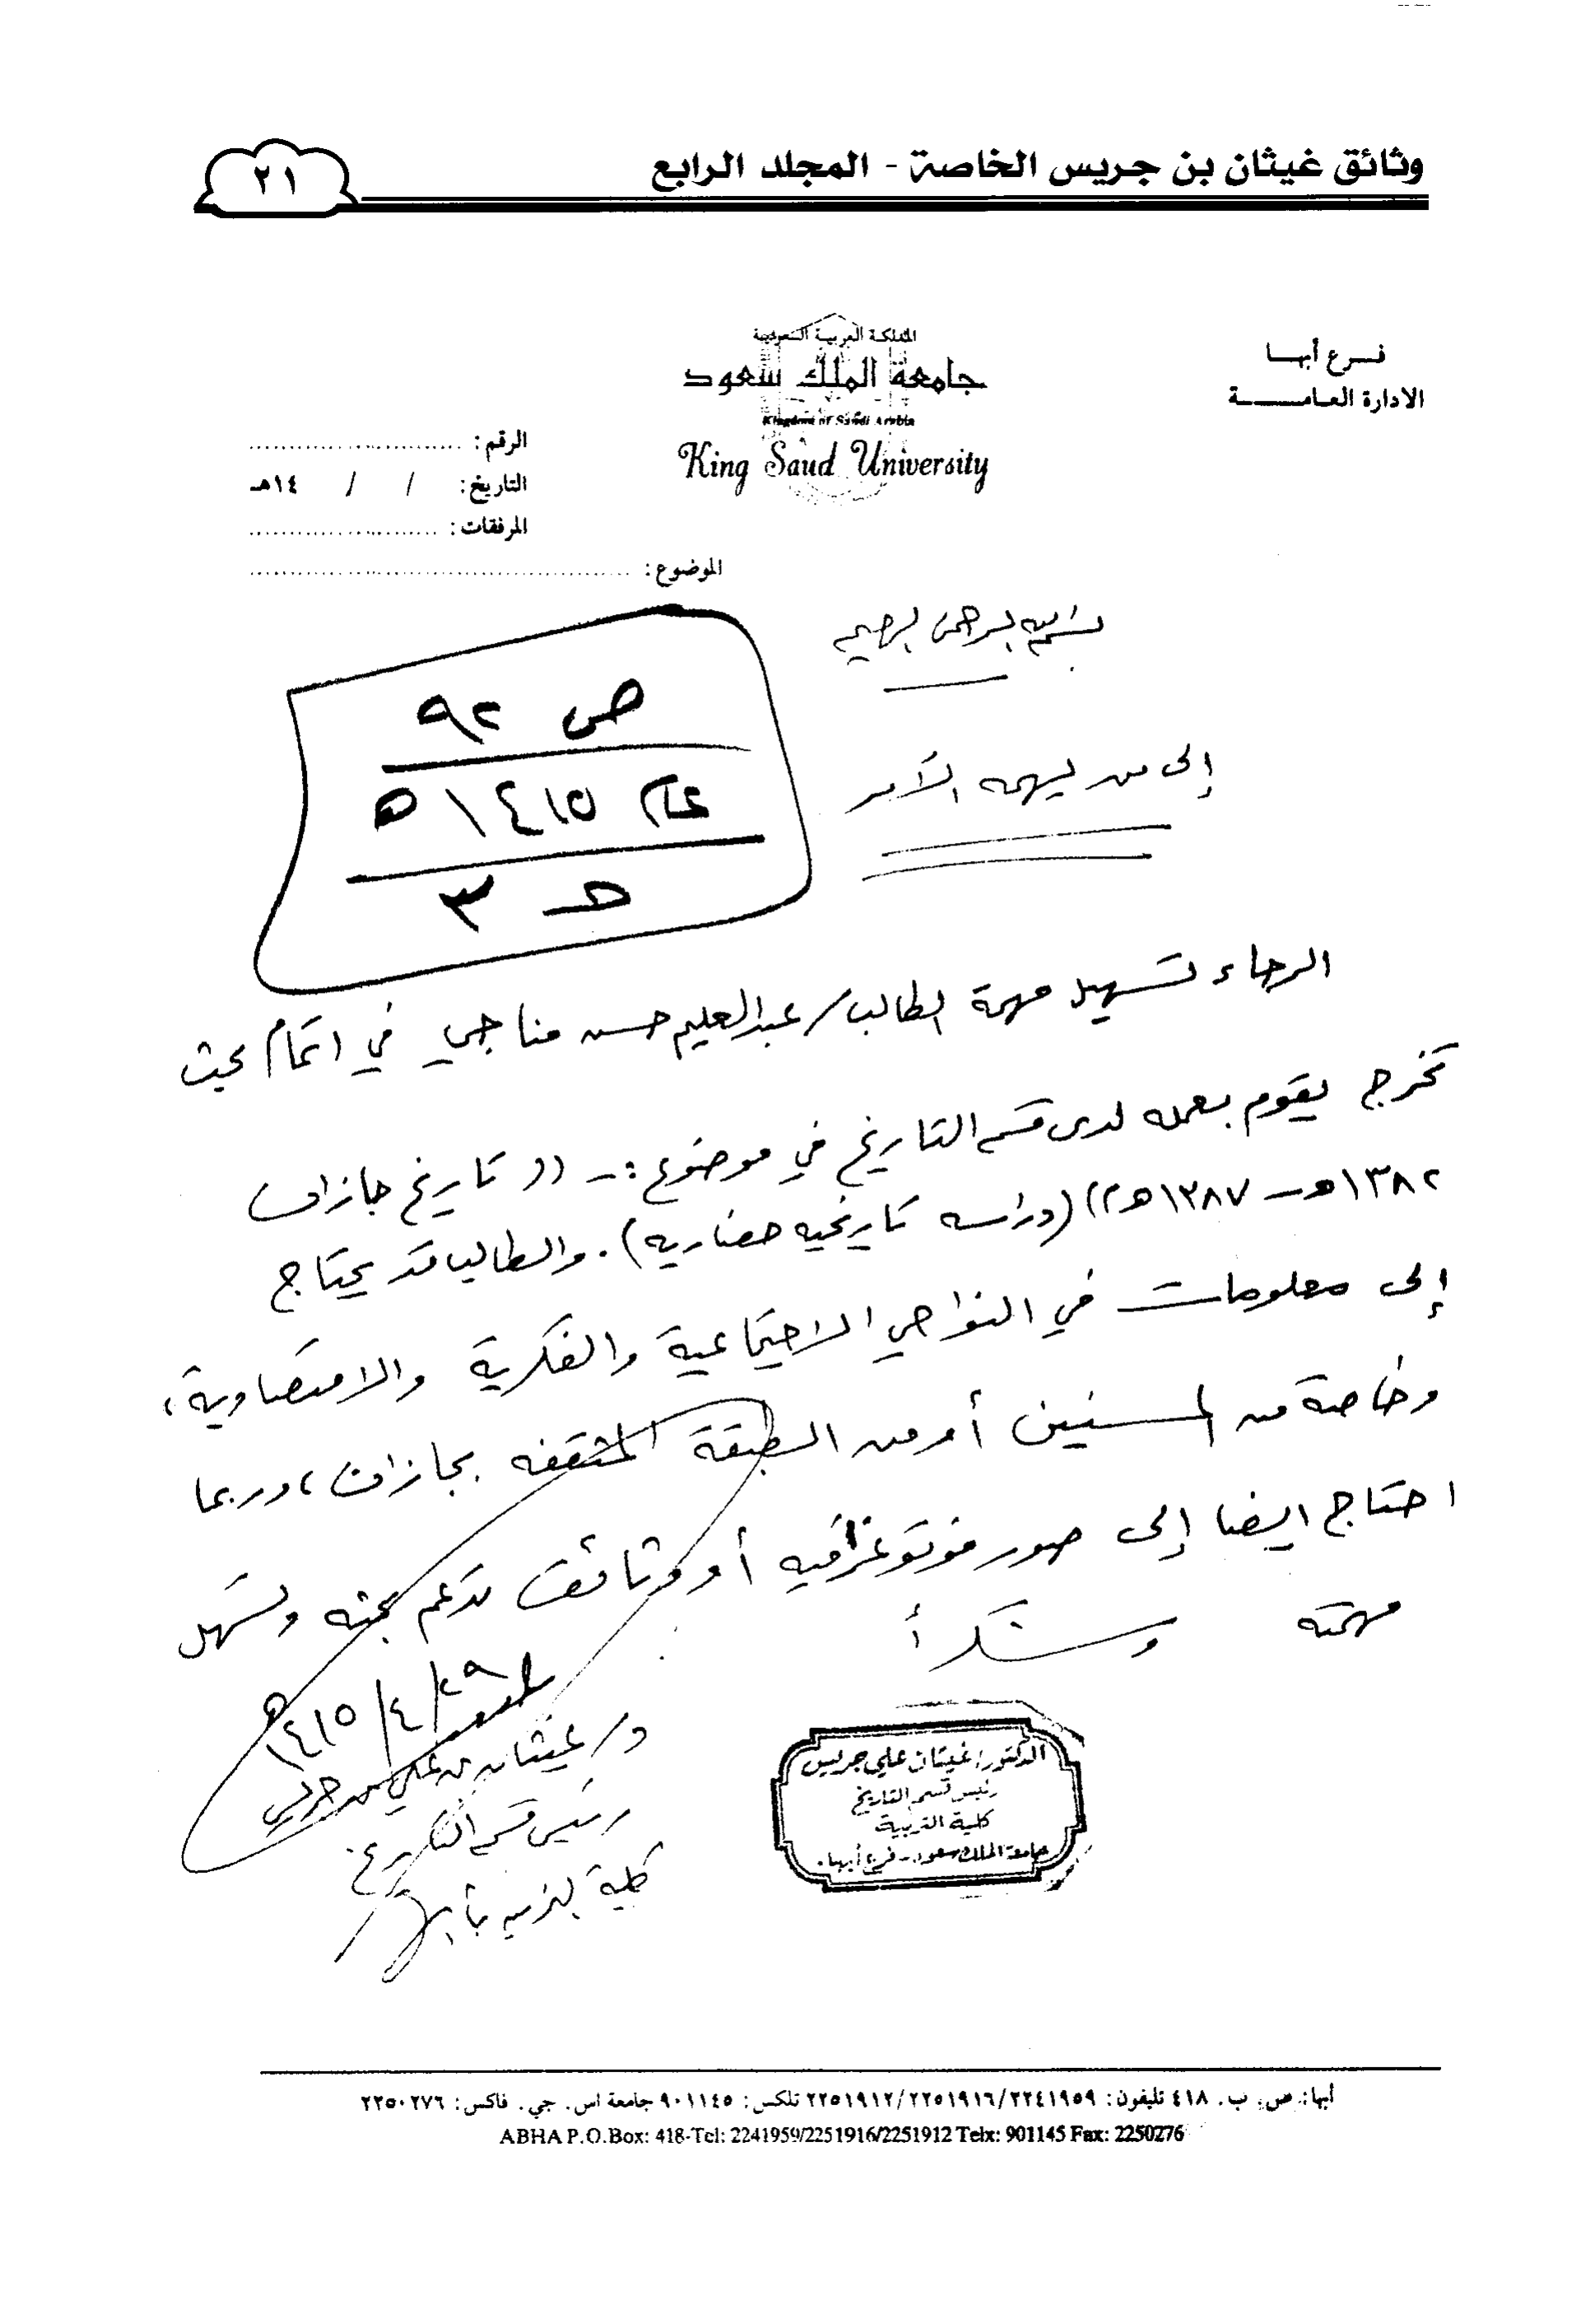 وثائق غيثان بن جريس الخاصة - المجلد الرابع
٢١
فرع أبها
الادارة العامة
المملكة العربية السعودية
جامعة الملك سعود
Kingdom of Saudi Arabia
King Saud University
الرقم:
التاريخ: / / ١٤هـ
المرفقات:
الموضوع:
بسم الله الرحمن الرحيم
ص ٩٢
عام ١٤١٥هـ
هـ ٣
إلى من يهمه الأمر
الرجاء تسهيل مهمة الطالب/ عبدالعليم حسن مناجي في اتمام بحث
تخرج يقوم بعمله لدى قسم التاريخ في موضوع :- (( تاريخ جازان
١٣٨٢هـ - ١٣٨٧هـ)) (دراسه تاريخيه حضاريه). والطالب قد يحتاج
إلى معلومات في النواحي الاجتماعية والفكرية والاقتصادية،
وخاصة من المسنين أو من الطبقة المثقفه بجازان، وربما
احتاج ايضا إلى صور فوتوغرافيه أو وثائق تدعم بحثه وتسهل
مهمته وشكراً
١٤١٥/٤/٢٩هـ
د/ غيثان بن علي بن جريس
رئيس قسم التاريخ
كلية التربيه بأبها
الدكتور/ غيثان علي جريس
رئيس قسم التاريخ
كلية التربية
جامعة الملك سعود - فرع أبها.
أبها: ص. ب. ٤١٨ تليفون: ٢٢٤١٩٥٩/٢٢٥١٩١٦/٢٢٥١٩١٢ تلكس: ٩٠١١٤٥ جامعة اس. جي. فاكس: ٢٢٥٠٢٧٦
ABHA P.O.Box: 418-Tel: 2241959/2251916/2251912 Telx: 901145 Fax: 2250276